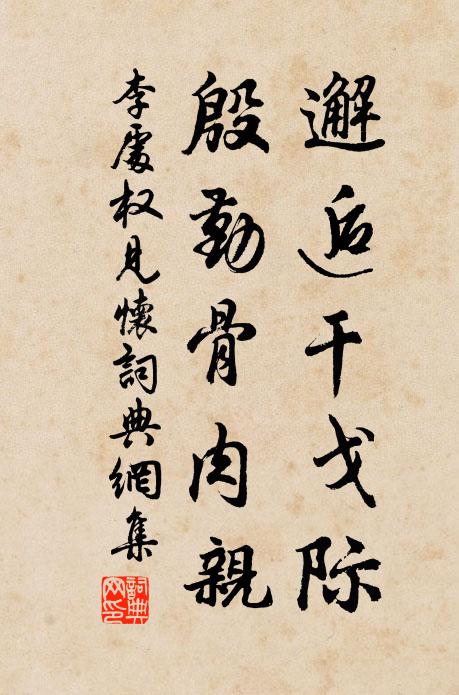 邂逅干戈际
殷勤骨肉親
李處权見懷詞典網集
詞典网印